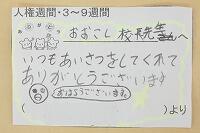 人権週間・3～9週間
おおこし 校長先生へ
いつもあいさつをしてくれて
ありがとうございます
おはようございます
( )より